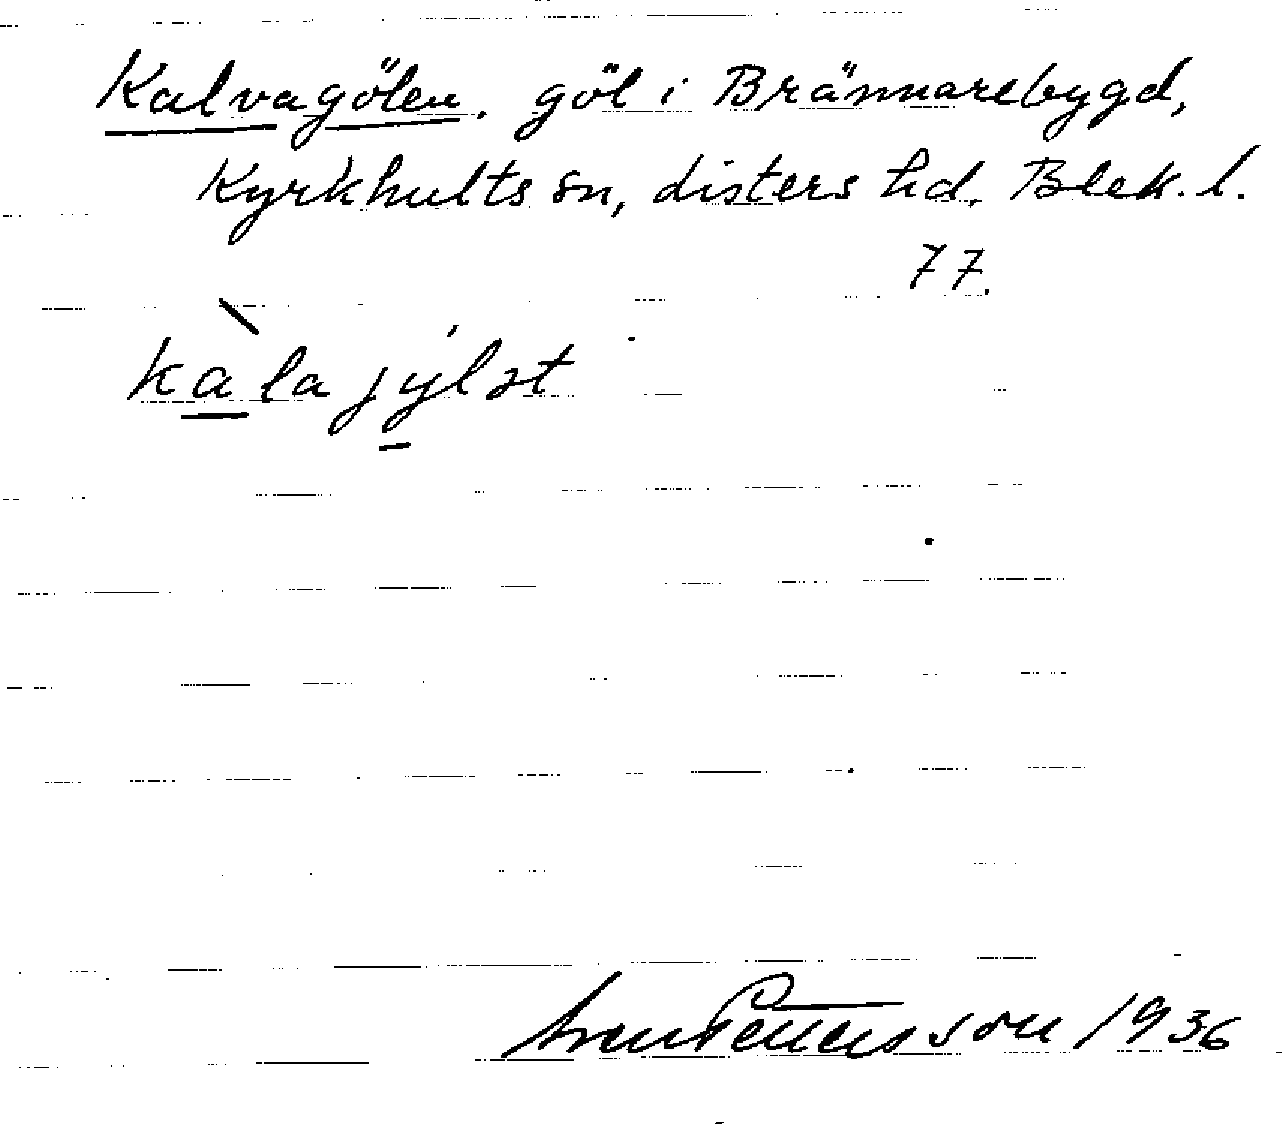 Kalvagölen. göl i Brännarebygd,
Kyrkhults sn, Listers hd. Blek. l.
77.
kàlajýlət
Sven Pettersson 1936